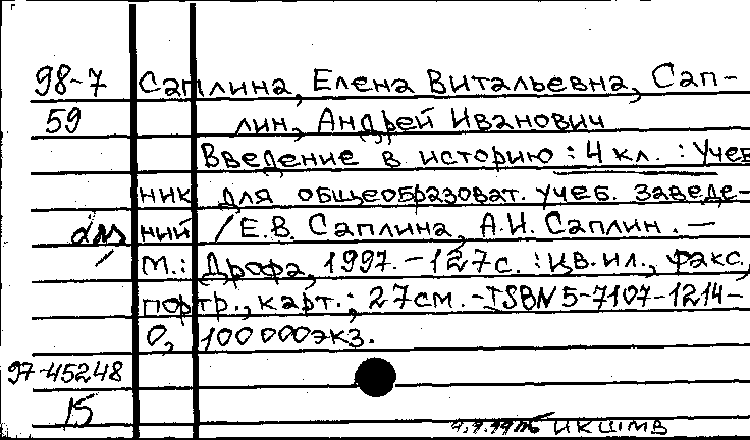 98-7 Саплина, Елена Витальевна, Сап-
59 лин, Андрей Иванович
Введение в историю : 4 кл. : Учеб
ник для общеобразоват. учеб. заведе-
ний / Е.В. Саплина, А.И. Саплин. —
М.: Дрофа, 1997. - 127с. : цв.ил., факс,
портр., карт.; 27см. - ISBN 5-7107-1214-
0, 100000экз.
97-45248
15